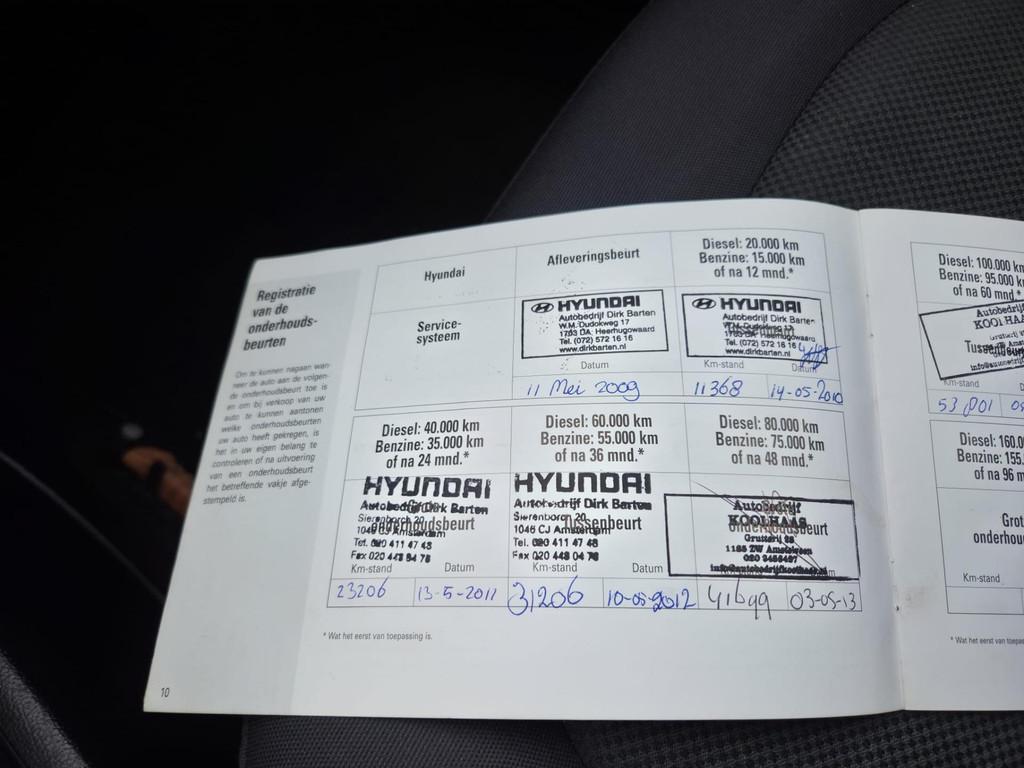 Registratie
van de
onderhouds-
beurten
Om te kunnen nagaan wan-
neer de auto aan de volgen-
de onderhoudsbeurt toe is
en om bij verkoop van uw
auto te kunnen aantonen
welke onderhoudsbeurten
uw auto heeft gekregen, is
het in uw eigen belang te
controleren of na uitvoering
van een onderhoudsbeurt
het betreffende vakje afge-
stempeld is.
10
Hyundai
Service-
systeem
Afleveringsbeurt
HYUNDAI
Autobedrijf Dirk Barten
W.M. Dudokweg 17
1703 DA Heerhugowaard
Tel. (072) 572 16 16
www.dirkbarten.nl
Datum
11 Mei 2009
Diesel: 20.000 km
Benzine: 15.000 km
of na 12 mnd.*
HYUNDAI
Autobedrijf Dirk Barten
W.M. Dudokweg 17
1703 DA Heerhugowaard
Tel. (072) 572 16 16
www.dirkbarten.nl
Km-stand Datum
11368 14-05-2010
Diesel: 40.000 km
Benzine: 35.000 km
of na 24 mnd.*
HYUNDAI
Autobedrijf Dirk Barten
Sierenborch 20
onderhoudsbeurt
1046 CJ Amsterdam
Tel. 020 411 47 48
Fax 020 448 04 78
Km-stand Datum
23206 13-5-2011
Diesel: 60.000 km
Benzine: 55.000 km
of na 36 mnd.*
HYUNDAI
Autobedrijf Dirk Barten
Sierenborch 20
Tussenbeurt
1046 CJ Amsterdam
Tel. 020 411 47 48
Fax 020 448 04 78
Km-stand Datum
31206 10-05-2012
Diesel: 80.000 km
Benzine: 75.000 km
of na 48 mnd.*
Autobedrijf
KOOLHAAS
onderhoudsbeurt
Grutterij
1185 ZW Amstelveen
03-05-13
* Wat het eerst van toepassing is.
Diesel: 100.000 km
Benzine: 95.000
of na 60 mnd.*
Autobedrijf
Tussenbeurt
Km-stand
53801
Diesel: 160.0
Benzine: 155.
of na 96 m
Grot
onderhou
Km-stand
* Wat het eerst van toepas